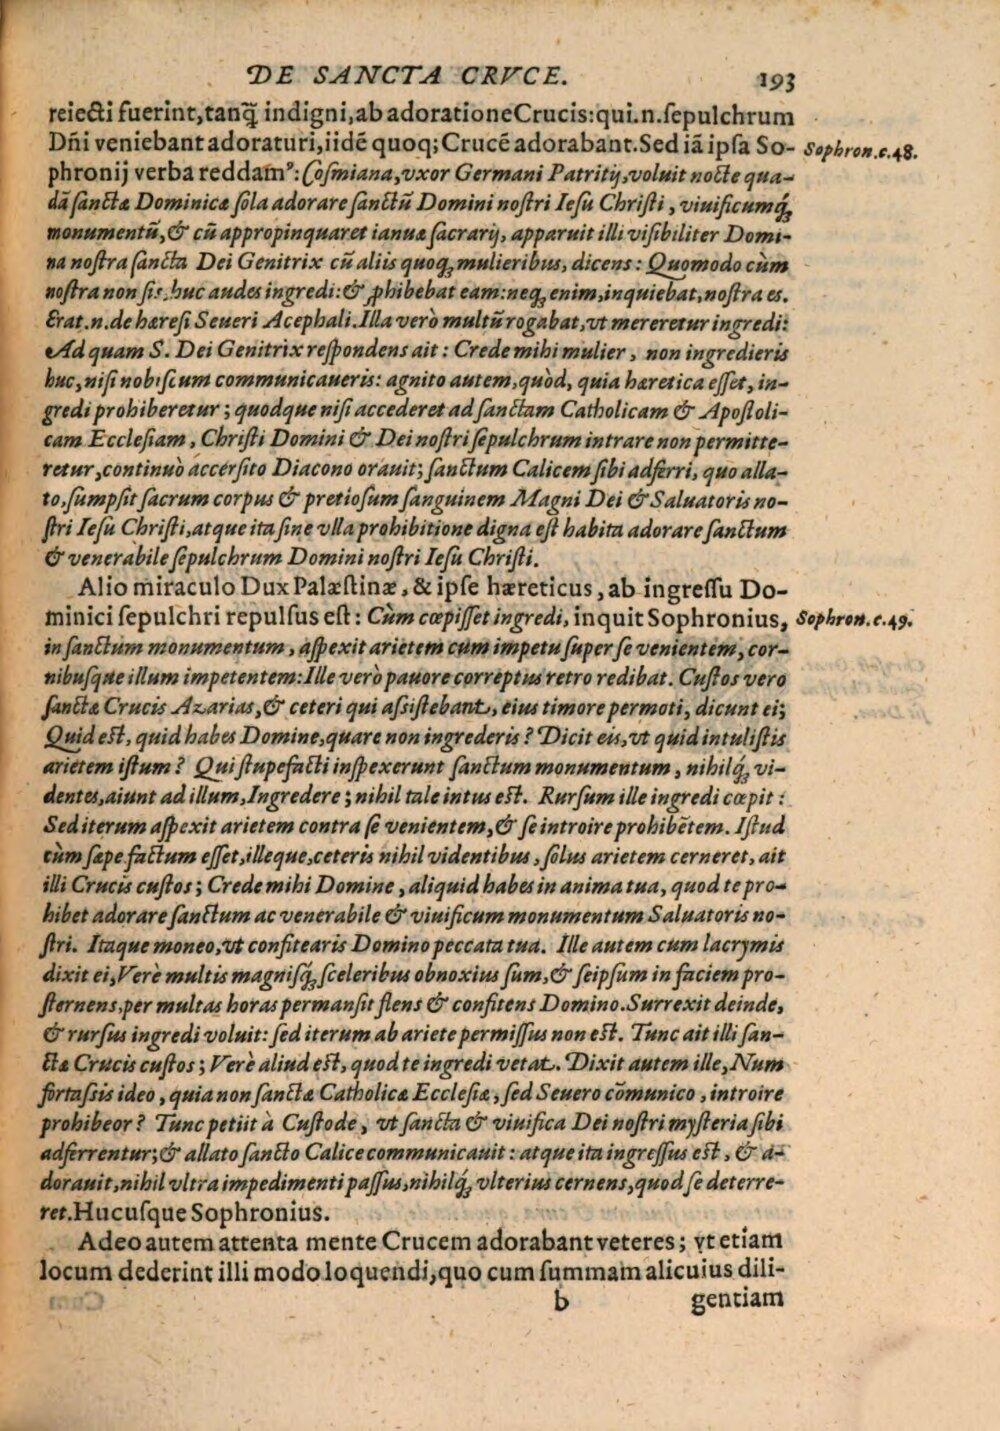 DE SANCTA CRVCE. 193
reiecti fuerint,tanq̃ indigni,ab adoratione Crucis:qui.n.ſepulchrum
Dñi veniebant adoraturi,iidē quoq; Crucē adorabant.Sed iā ipſa So- Sophron.c.48.
phronij verba reddamꝰ: Coſmiana,vxor Germani Patritij,voluit nocte qua-
dā ſanctæ Dominicæ ſola adorare ſanctū Domini noſtri Ieſu Chriſti, viuificumq́;
monumentū,& cū appropinquaret ianuæ ſacrarij, apparuit illi viſibiliter Domi-
na noſtra ſancta Dei Genitrix cū aliis quoq; mulieribus, dicens: Quomodo cùm
noſtra non ſis, huc audes ingredi:& ꝓhibebat eam:neq; enim,inquiebat,noſtra es.
Erat.n.de hæreſi Seueri Acephali.Illa verò multū rogabat,vt mereretur ingredi:
Ad quam S. Dei Genitrix reſpondens ait: Crede mihi mulier, non ingredieris
huc,niſi nobiſcum communicaueris: agnito autem,quòd, quia hæretica eſſet, in-
gredi prohiberetur; quodque niſi accederet ad ſanctam Catholicam & Apoſtoli-
cam Eccleſiam, Chriſti Domini & Dei noſtri ſepulchrum intrare non permitte-
retur,continuò accerſito Diacono orauit; ſanctum Calicem ſibi adferri, quo alla-
to,ſumpſit ſacrum corpus & pretioſum ſanguinem Magni Dei & Saluatoris no-
ſtri Ieſu Chriſti,atque ita ſine vlla prohibitione digna eſt habita adorare ſanctum
& venerabile ſepulchrum Domini noſtri Ieſu Chriſti.
Alio miraculo Dux Palæſtinæ, & ipſe hæreticus, ab ingreſſu Do-
minici ſepulchri repulſus eſt: Cùm cœpiſſet ingredi, inquit Sophronius, Sophron.c.49.
in ſanctum monumentum, aſpexit arietem cum impetu ſuper ſe venientem, cor-
nibuſque illum impetentem:Ille verò pauore correptus retro redibat. Cuſtos vero
ſanctæ Crucis Azarias,& ceteri qui aſsiſtebant, eius timore permoti, dicunt ei;
Quid eſt, quid habes Domine,quare non ingrederis? Dicit eis,vt quid intuliſtis
arietem iſtum? Qui ſtupefacti inſpexerunt ſanctum monumentum, nihilq́; vi-
dentes,aiunt ad illum,Ingredere; nihil tale intus eſt. Rurſum ille ingredi cœpit:
Sed iterum aſpexit arietem contra ſe venientem,& ſe introire prohibētem. Iſtud
cùm ſæpe factum eſſet,illeque,ceteris nihil videntibus, ſolus arietem cerneret, ait
illi Crucis cuſtos; Crede mihi Domine, aliquid habes in anima tua, quod te pro-
hibet adorare ſanctum ac venerabile & viuificum monumentum Saluatoris no-
ſtri. Itaque moneo,vt confitearis Domino peccata tua. Ille autem cum lacrymis
dixit ei,Verè multis magniſq́; ſceleribus obnoxius ſum,& ſeipſum in faciem pro-
ſternens,per multas horas permanſit flens & confitens Domino.Surrexit deinde,
& rurſus ingredi voluit: ſed iterum ab ariete permiſſus non eſt. Tunc ait illi ſan-
ctæ Crucis cuſtos; Verè aliud eſt, quod te ingredi vetat. Dixit autem ille,Num
fortaſsis ideo, quia non ſanctæ Catholicæ Eccleſiæ, ſed Seuero cōmunico, introire
prohibeor? Tunc petiit à Cuſtode, vt ſancta & viuifica Dei noſtri myſteria ſibi
adferrentur;& allato ſancto Calice communicauit: atque ita ingreſſus eſt, & a-
dorauit,nihil vltra impedimenti paſſus,nihilq́; vlterius cernens,quod ſe deterre-
ret.Hucuſque Sophronius.
Adeo autem attenta mente Crucem adorabant veteres; vt etiam
locum dederint illi modo loquendi,quo cum ſummam alicuius dili-
b gentiam